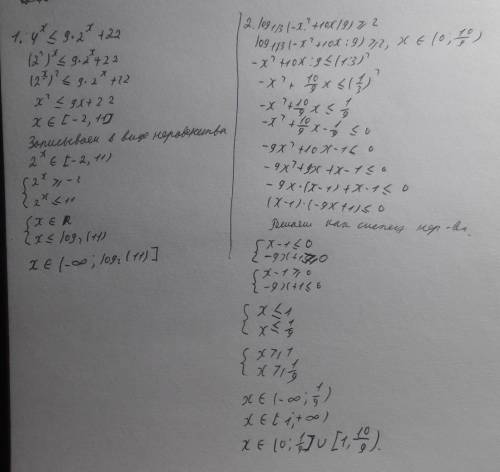 1. 4^x ≤ 9·2^x + 22
(2²)^x ≤ 9·2^x+22
(2^x)² ≤ 9·2^x+22
x² ≤ 9x+22
x ∈ [-2, 11]
Записываем в виде неравенства
2^x ∈ [-2, 11)
{2^x ≥ -2
{2^x ≤ 11
{x ∈ R
{x ≤ log₂(11)
x ∈ (-∞; log₂(11)]
2. log₁/₃(-x²+10x/9) ≥ 2
log₁/₃(-x²+10x:9) ≥ 2, x ∈ (0; 10/9)
-x²+10x:9 ≤ (1/3)²
-x² + 10/9 x ≤ (1/3)²
-x²+10/9 x ≤ 1/9
-x²+10/9 x - 1/9 ≤ 0
-9x²+10x-1 ≤ 0
-9x²+9x+x-1 ≤ 0
-9x·(x-1)+x-1 ≤ 0
(x-1)·(-9x+1) ≤ 0
Решаем как систем нер-ва.
{x-1 ≤ 0
{-9x+1 ≥ 0
{x-1 ≥ 0
{-9x+1 ≤ 0
{x ≤ 1
{x ≤ 1/9
{x ≥ 1
{x ≥ 1/9
x ∈ (-∞; 1/9)
x ∈ [1; +∞)
x ∈ (0; 1/9] ∪ [1, 10/9).